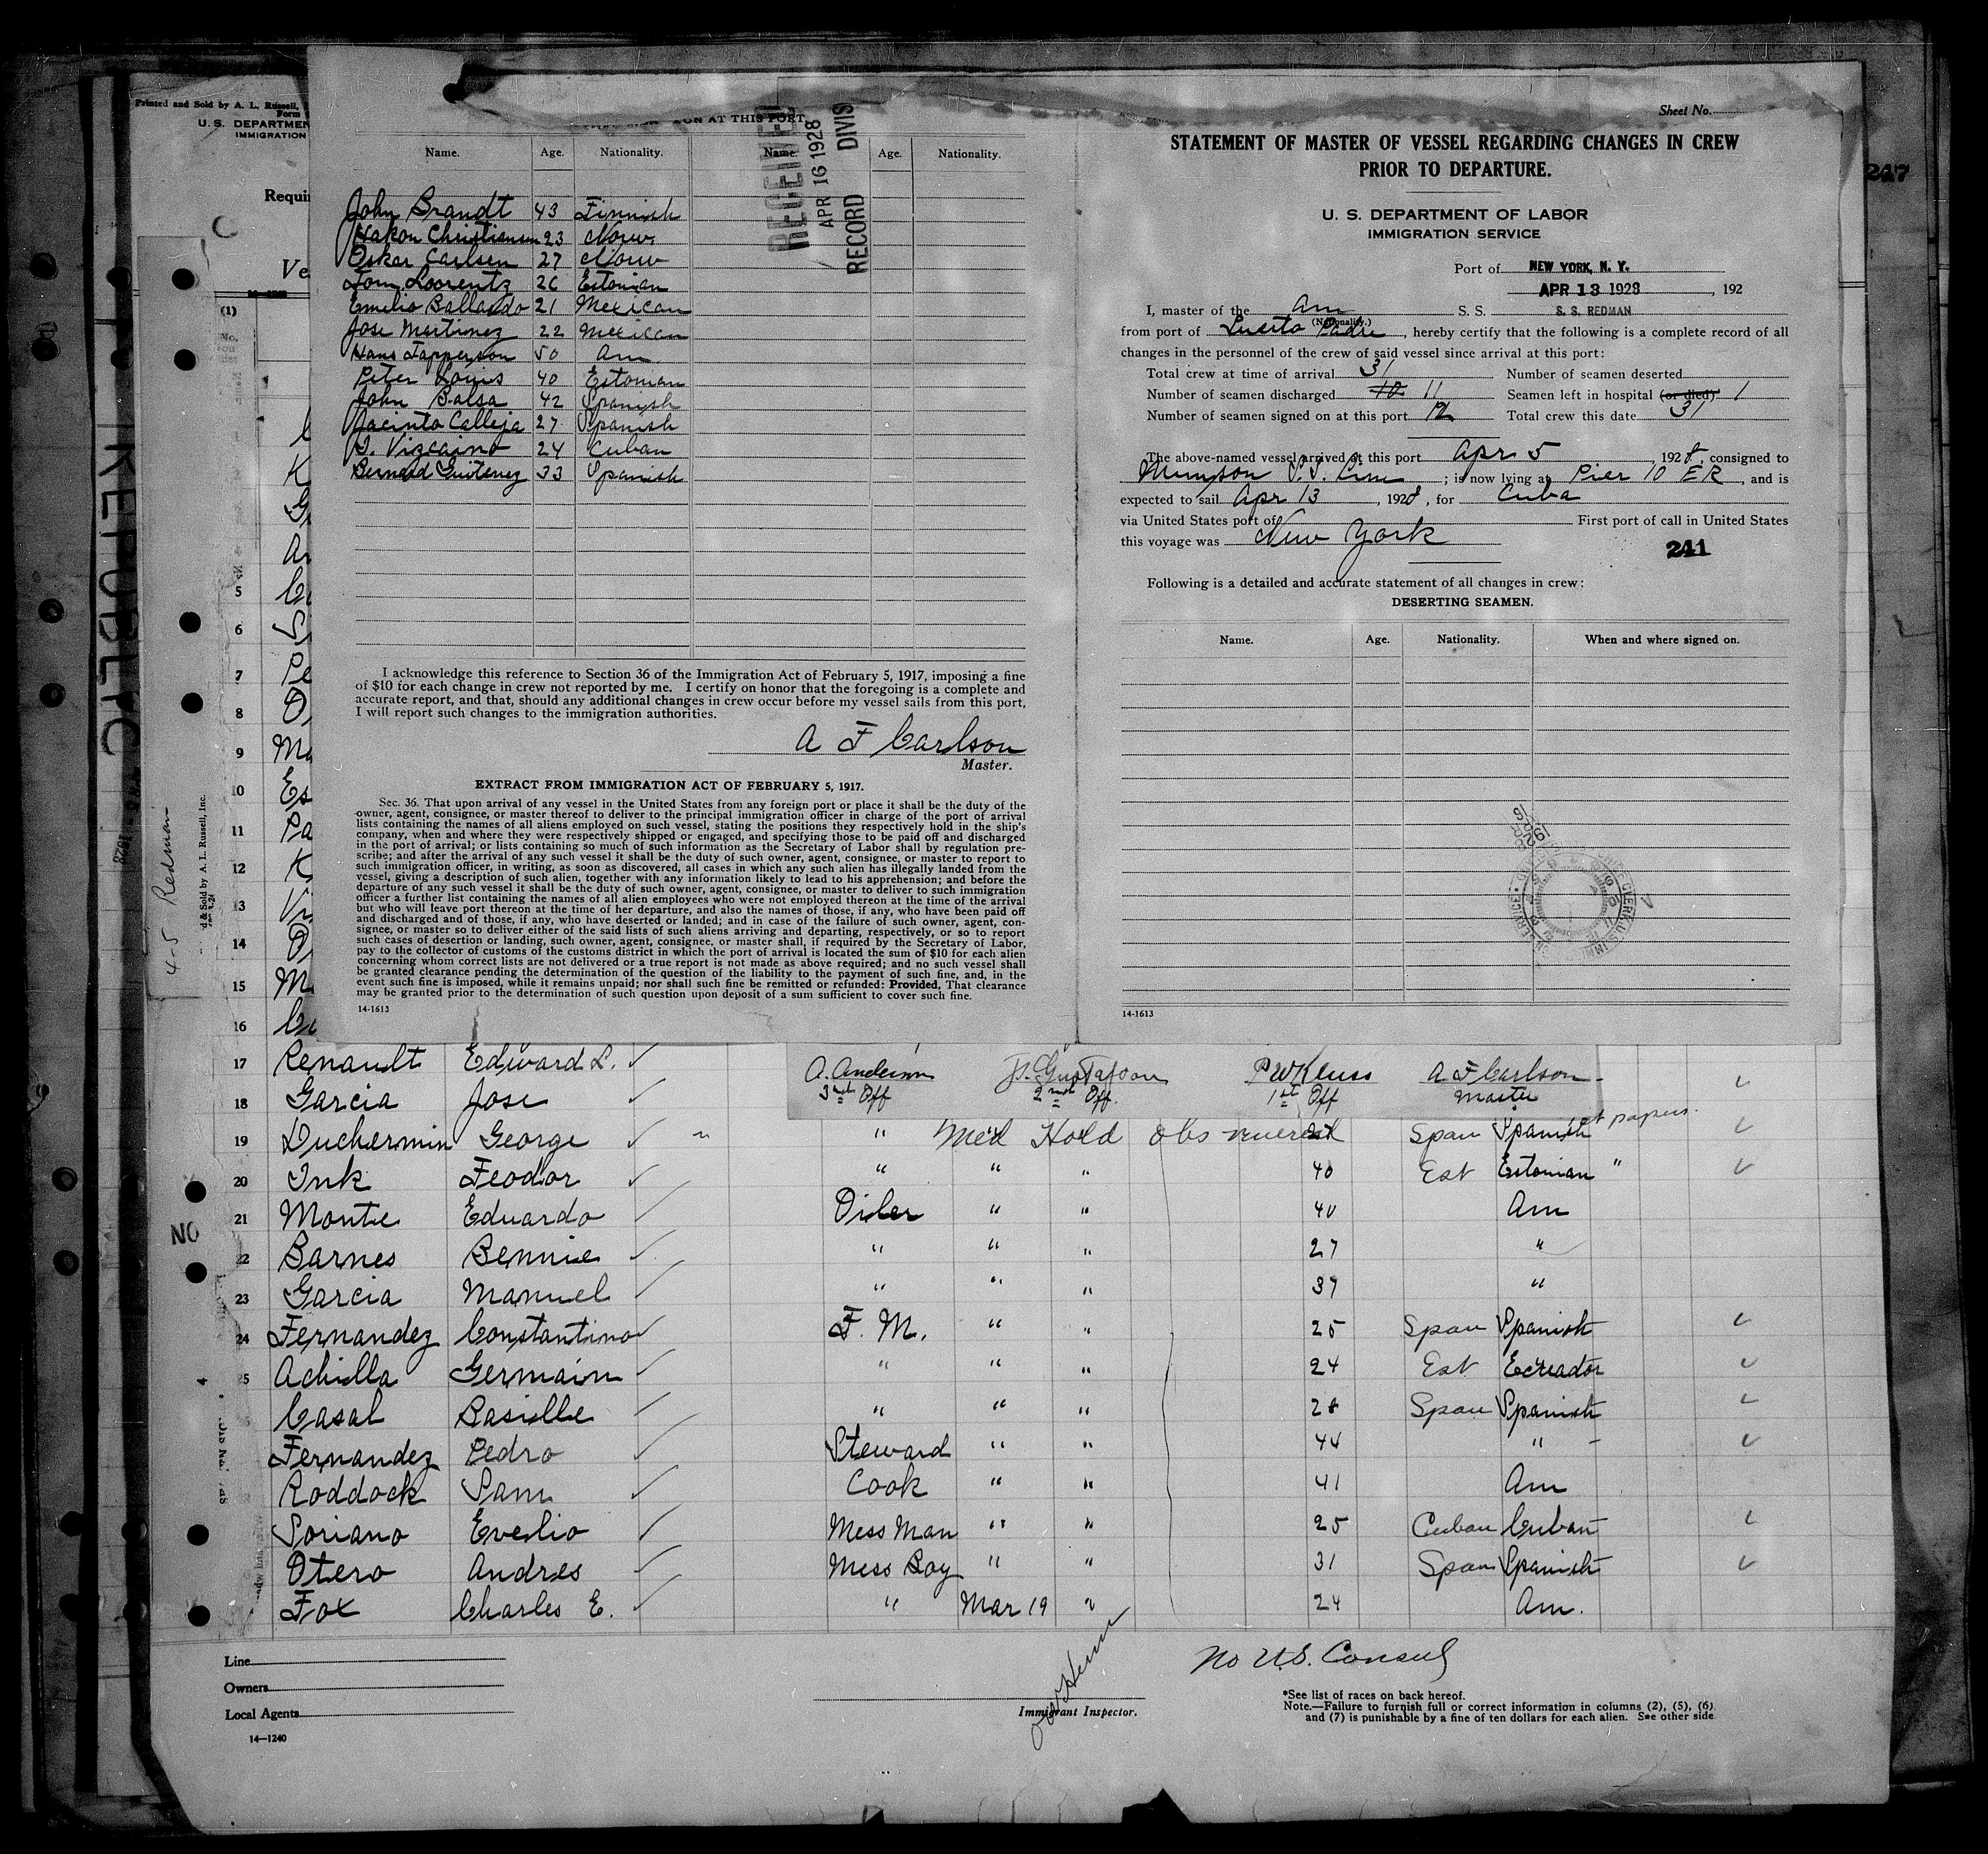 Printed and Sold by A. L. Russell,
Form
U. S. DEPARTMEN
IMMIGRATION
Requir
Ve
(1)
No.
REPUBLIC
4-5 Redman
d & Sold by A. L. Russell, Inc.
NO
ON AT THIS PORT
Name. Age. Nationality. Name. Age. Nationality.
RECEIVED
APR 16 1928
RECORD DIVIS
John Brandt 43 Finnish
Hakon Christiansen 23 Norw.
Oskar Carlsen 27 Norw
Tom. Loorentz 26 Estonian
Emilio Ballardo 21 Mexican
Jose Martinez 22 Mexican
Hans Japperson 50 Am
Peter Louis 40 Estonian
John Balsa 42 Spanish
Jacinto Calleja 27 Spanish
Vizcaino 24 Cuban
Bernard 33 Spanish
I acknowledge this reference to Section 36 of the Immigration Act of February 5, 1917, imposing a fine
of $10 for each change in crew not reported by me. I certify on honor that the foregoing is a complete and
accurate report, and that, should any additional changes in crew occur before my vessel sails from this port,
I will report such changes to the immigration authorities.
A F Carlson
Master.
EXTRACT FROM IMMIGRATION ACT OF FEBRUARY 5, 1917.
Sec. 36. That upon arrival of any vessel in the United States from any foreign port or place it shall be the duty of the
owner, agent, consignee, or master thereof to deliver to the principal immigration officer in charge of the port of arrival
lists containing the names of all aliens employed on such vessel, stating the positions they respectively hold in the ship's
company, when and where they were respectively shipped or engaged, and specifying those to be paid off and discharged
in the port of arrival; or lists containing so much of such information as the Secretary of Labor shall by regulation pre-
scribe; and after the arrival of any such vessel it shall be the duty of such owner, agent, consignee, or master to report to
such immigration officer, in writing, as soon as discovered, all cases in which any such alien has illegally landed from the
vessel, giving a description of such alien, together with any information likely to lead to his apprehension; and before the
departure of any such vessel it shall be the duty of such owner, agent, consignee, or master to deliver to such immigration
officer a further list containing the names of all alien employees who were not employed thereon at the time of the arrival
but who will leave port thereon at the time of her departure, and also the names of those, if any, who have been paid off
and discharged and of those, if any, who have deserted or landed; and in case of the failure of such owner, agent, con-
signee, or master so to deliver either of the said lists of such aliens arriving and departing, respectively, or so to report
such cases of desertion or landing, such owner, agent, consignee, or master shall, if required by the Secretary of Labor,
pay to the collector of customs of the customs district in which the port of arrival is located the sum of $10 for each alien
concerning whom correct lists are not delivered or a true report is not made as above required; and no such vessel shall
be granted clearance pending the determination of the question of the liability to the payment of such fine, and, in the
event such fine is imposed, while it remains unpaid; nor shall such fine be remitted or refunded: Provided, That clearance
may be granted prior to the determination of such question upon deposit of a sum sufficient to cover such fine.
14-1613
Sheet No.
STATEMENT OF MASTER OF VESSEL REGARDING CHANGES IN CREW
PRIOR TO DEPARTURE.
U. S. DEPARTMENT OF LABOR
IMMIGRATION SERVICE
247
Port of NEW YORK, N. Y.
APR 13 1928, 192
I, master of the Am S. S. S. S. REDMAN
(Nationality.)
from port of Puerto Padre, hereby certify that the following is a complete record of all
changes in the personnel of the crew of said vessel since arrival at this port:
Total crew at time of arrival 31 Number of seamen deserted
Number of seamen discharged 10 11 Seamen left in hospital (or died) 1
Number of seamen signed on at this port 12 Total crew this date 31
The above-named vessel arrived at this port Apr 5, 1928, consigned to
Munson S.S. Line; is now lying at Pier 10 ER, and is
expected to sail Apr 13, 1928, for Cuba
via United States port of First port of call in United States
this voyage was New York
241
Following is a detailed and accurate statement of all changes in crew:
DESERTING SEAMEN.
Name. Age. Nationality. When and where signed on.
14-1613
5
6
7
8
9
10
11
12
13
14
15
16
A. Anderson J. Gustafson P W Kluss A F Carlson
3rd Off 2nd Off. 1st Off Master
17 Renault Edward L.
18 Garcia Jose
1st papers.
19 Duchermin George " Med Hold obs Span Spanish
20 Ink Feodor " " " 40 Est Estonian "
21 Monte Eduardo Oiler " " 40 Am
22 Barnes Bennie " " " 27 "
23 Garcia Manuel " " " 37 "
24 Fernandez Constantino F. M. " " 25 Span Spanish
25 Achilla Germain " " " 24 Est Ecreador
Casal Basille " " " 28 Span Spanish
Fernandez Pedro Steward " " 44 "
Roddock Sam Cook " " 41 Am
Soriano Evelio Mess Man " " 25 Cuban Cuban
Otero Andres Mess Boy " " 31 Span Spanish
Fox Charles E. " Mar 19 " 24 Am.
Line
Owners
Local Agents
14-1240
Immigrant Inspector.
No U.S. Consul
*See list of races on back hereof.
Note.—Failure to furnish full or correct information in columns (2), (5), (6)
and (7) is punishable by a fine of ten dollars for each alien. See other side